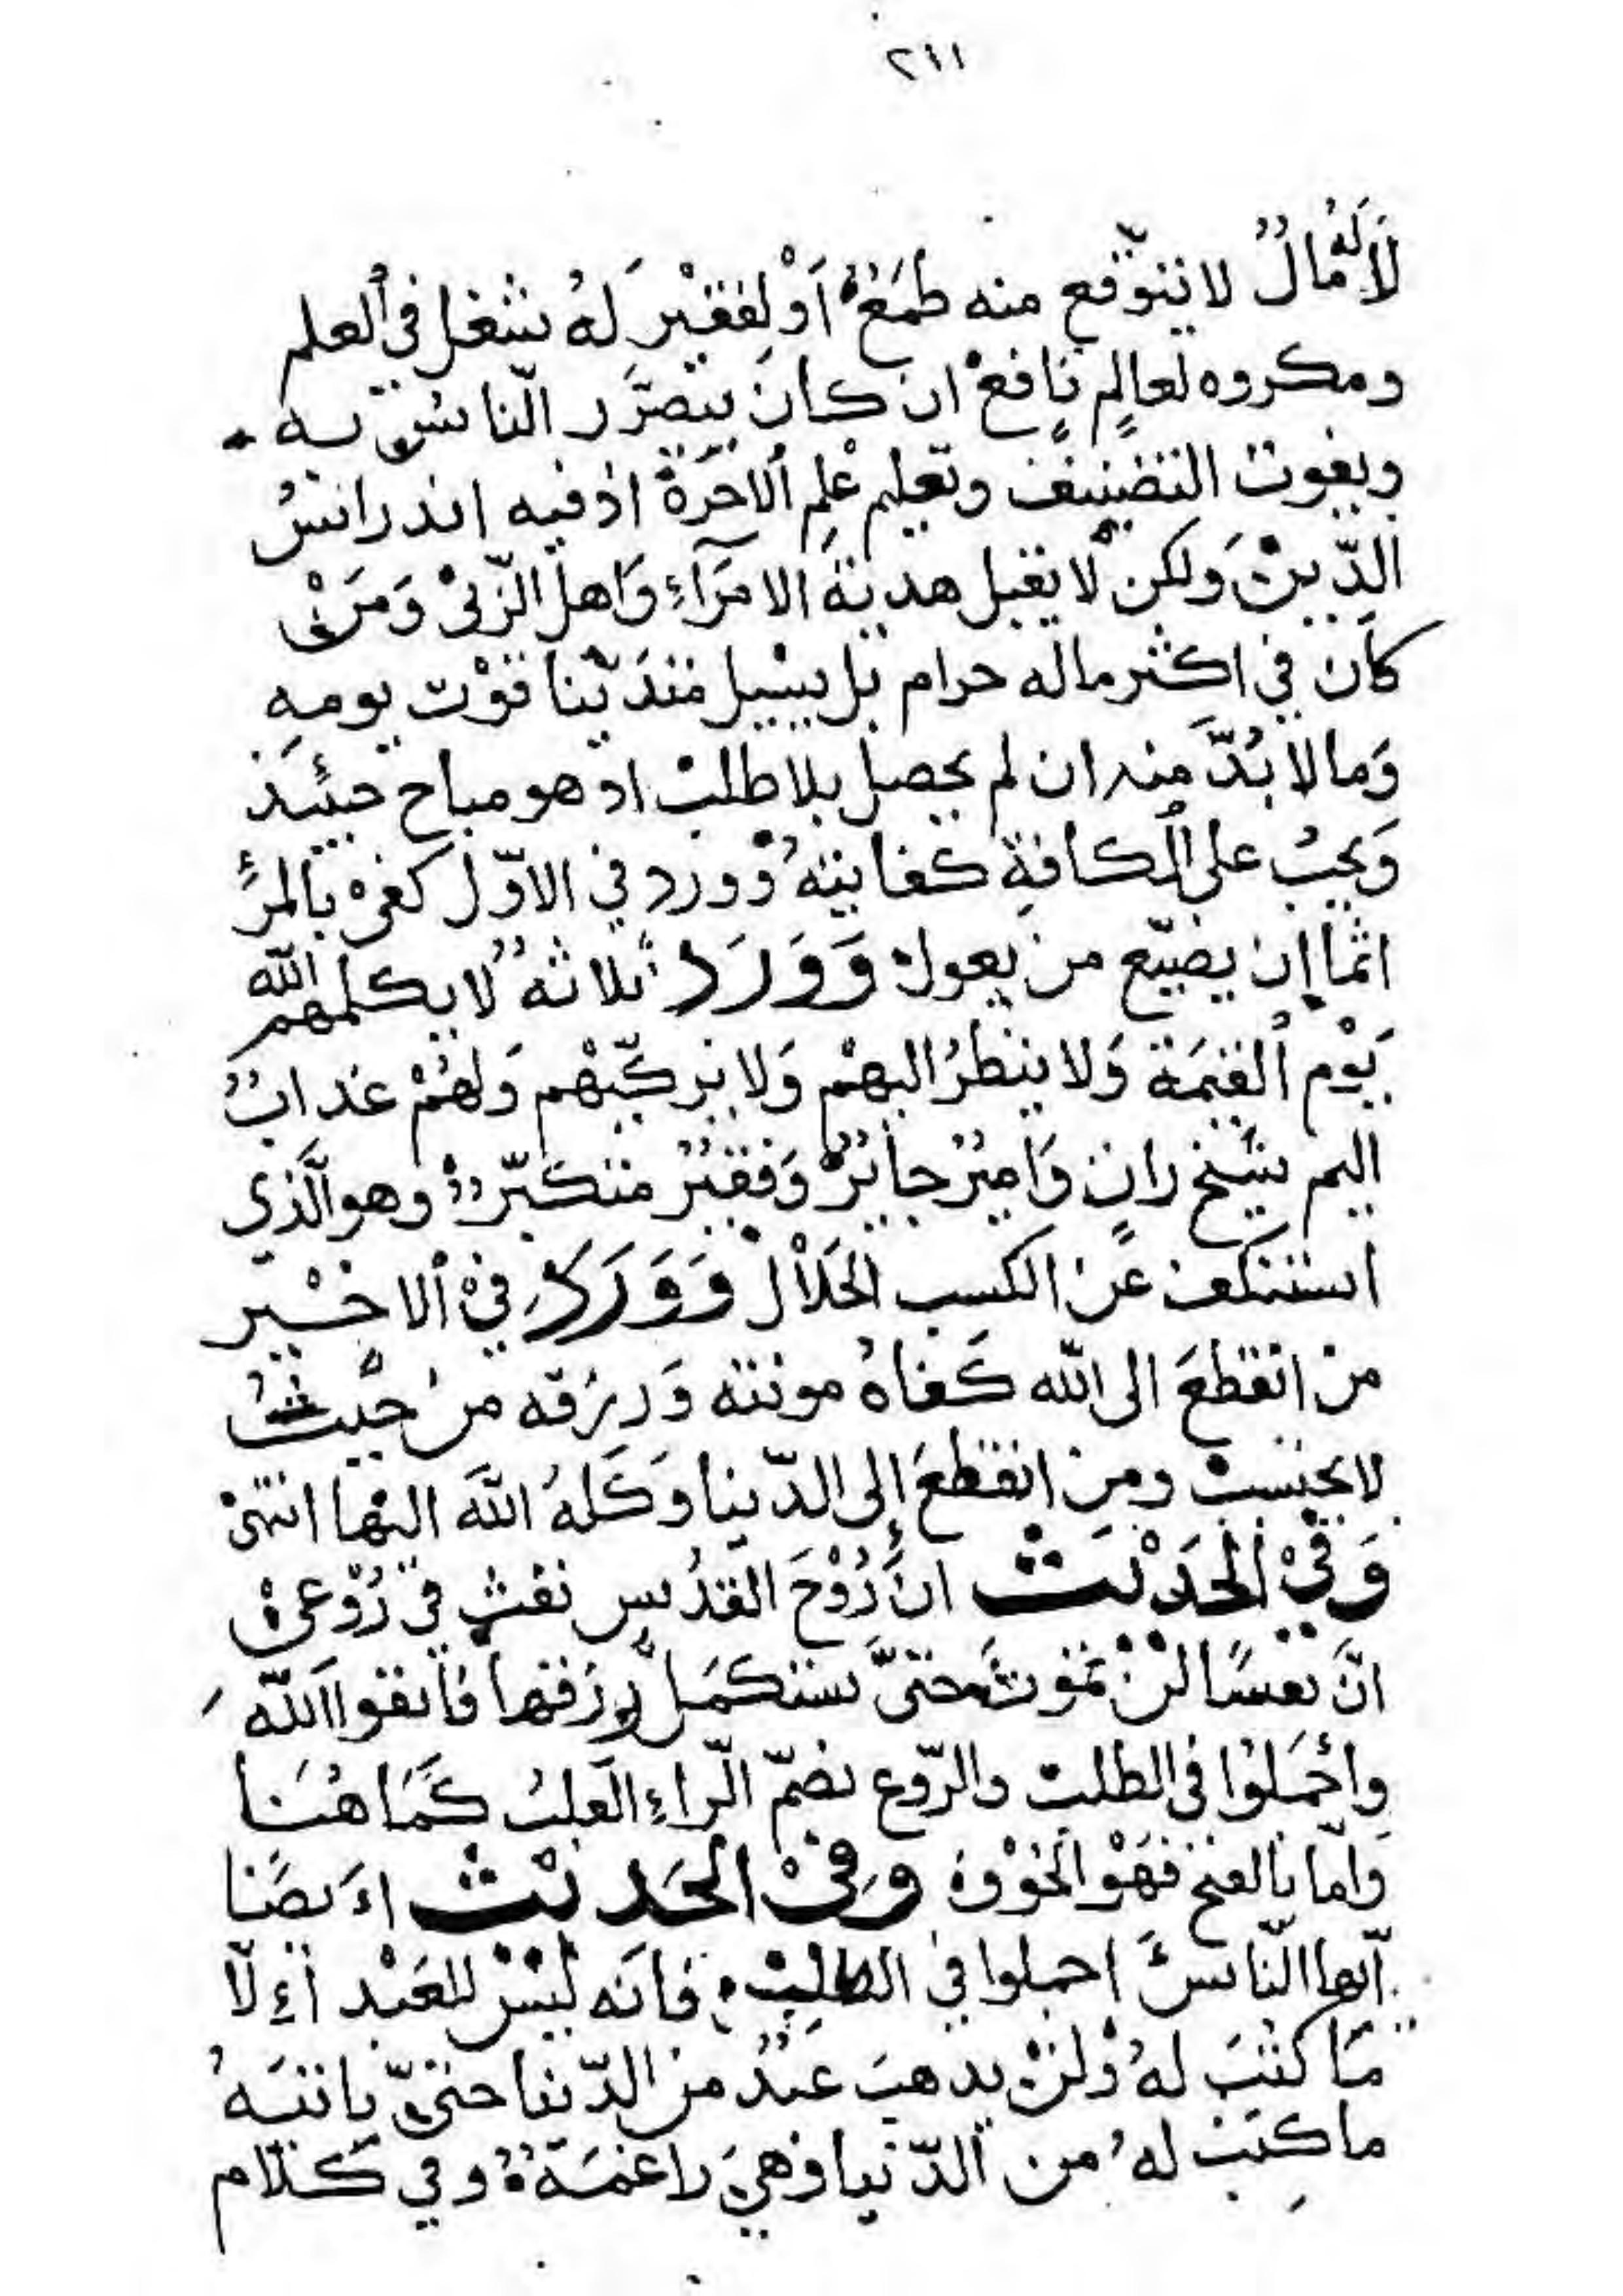 ٢٤١
لَا لَهُ مَالٌ لا يتوقّع منه طمَعٌ أَوْ لِفقيْر لَهُ شغل في العلم
ومكروه لعالِمٍ نافعٍ ان كان يتضرَّر الناس به
ويفوت التصنيف وتعليم عْلِم الاخَرة اذ فيه اندراسُ
الدّين وَلكن لا يقبل هديةَ الامرَآءِ وَاهل الرّبى وَمَن
كان في اكثر ماله حرام بل يسيل متدَيّنا قوْت يومهِ
وَمالا بُدَّ مِنه ان لم يحصل بلا طلب اذ هو مباح حينئَذ
وَيجبُ على الكافةِ كفايتهُ وورد في الاوّل كفى بالمرْءِ
اثما ان يضيّع من يعول وَوَرَدَ ثلاثةٌ لا يكلمهم الله
يَوْم القيمَة وَلا ينظرُ اليهمْ وَلا يزكّيْهم وَلهُمْ عذابٌ
اليم شيخ زانٍ وَاميْرٌ جائرٌ وَفقيْرٌ متكبّرٌ وهو الَّذي
استنكف عَن الكسب الحَلَاْل وَوَرَدَ في الاخيْر
من انقطعَ الى الله كَفاهُ مونته وَرِزقه منْ حيْثُ
لا يحتسب ومن انقطعَ إلى الدّنيا وَكَلهُ اللهَ اليْها انتهىْ
وَفيْ الْحَدْيث انَّ رُوْحَ القدُس نفث في رُوْعيْ
انَّ نفسًا لنْ تموتَ حتىَّ تستكمَل رِزقها فَاتقوا اللهَ
وأجْمَلوُا في الطلب والرّوع بضمّ الرّاءِ القلبُ كَمَا هُنَا
وامّا بالفتح فهَوْ الخوْف وَفيْ الْحَديْث اَيضًا
أيّها النّاسُ اجملوا في الطلب فانّه ليْس للعَبْد اِلّا
مَا كُتبَ لهُ وْلنْ يذهبَ عَبدٌ من الدّنيا حتىّ يأتيَهُ
ما كتِبَ لهُ من الدّنيا وَهيَ راغمَةٌ وفي كلام